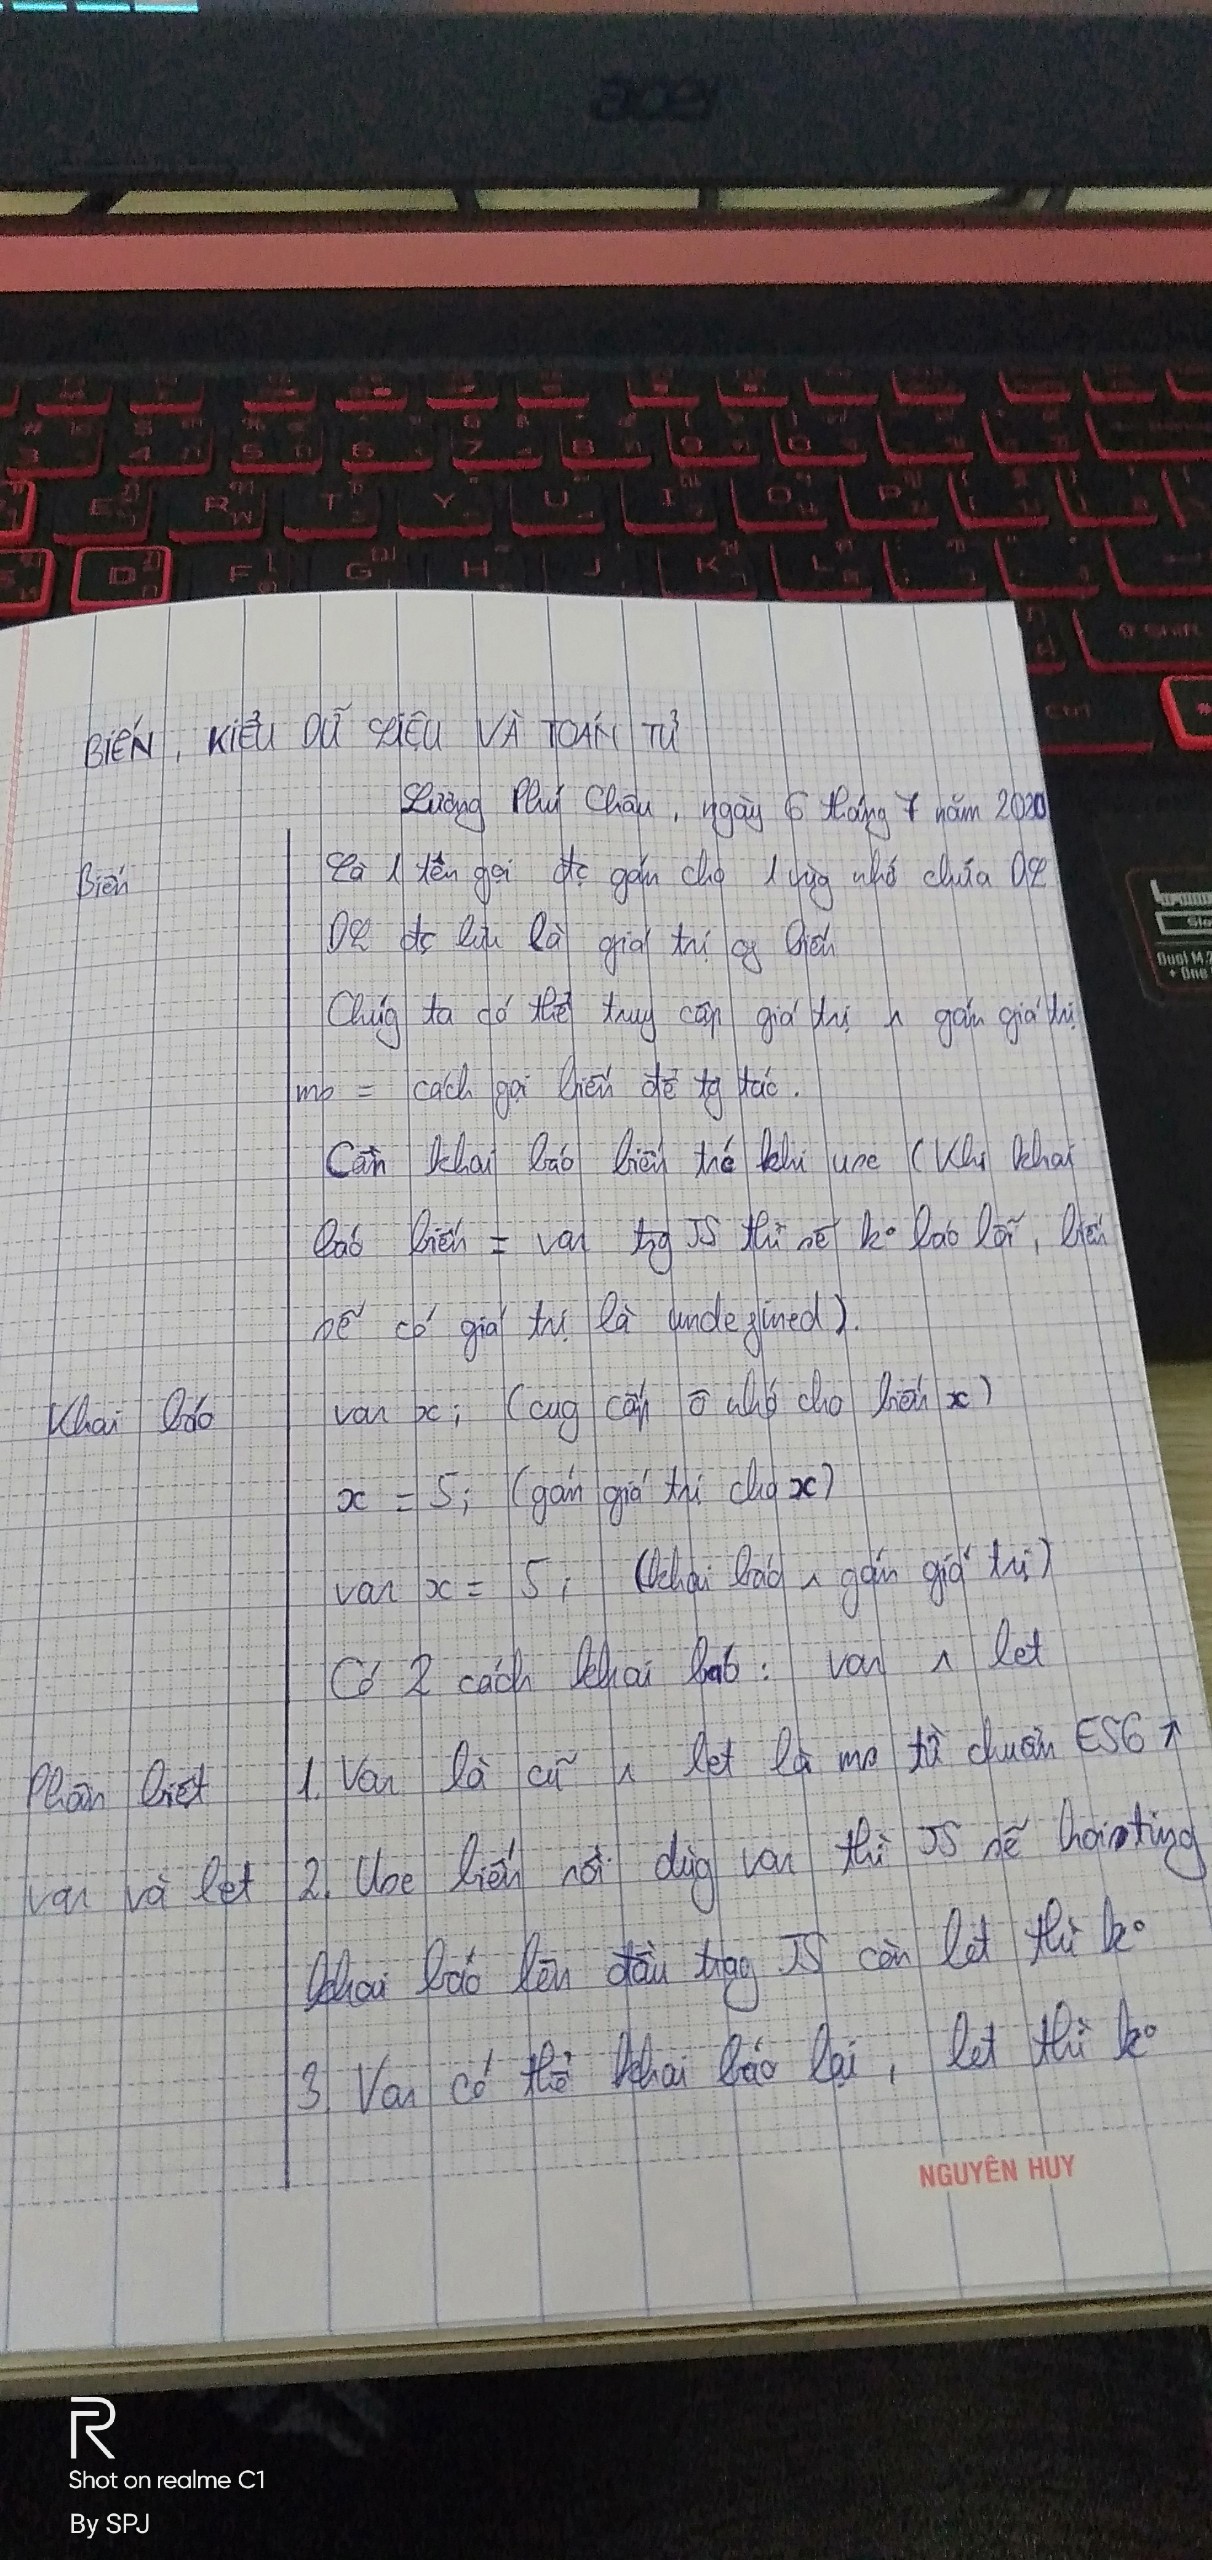 acer
BIẾN, KIỂU DỮ LIỆU VÀ TOÁN TỬ
Lương Phú Châu, ngày 6 tháng 7 năm 2020
Biến
Là 1 tên gọi đc gán cho 1 vùg nhớ chứa DL
DL đc lưu là giá trị củ biến
Chúg ta có thể truy cập giá trị ^ gán giá trị
= cách gọi biến để tg tác.
Cần khai báo biến trc khi use (Khi khai
báo biến = var trg JS thì sẽ ko báo lỗi, biến
sẽ có giá trị là undefined).
Khai báo
var x; (cug cấp ô nhớ cho biến x)
x = 5; (gán giá trị cho x)
var x = 5; (khai báo ^ gán giá trị)
Có 2 cách khai báo: var ^ let
Phân biệt
var và let
1. Var là cũ ^ let là ms từ chuẩn ES6 ↑
2. Use biến rồi dùg var thì JS sẽ hoisting
khai báo lên đầu trag JS còn let thì ko
3. Var có thể khai báo lại, let thì ko
NGUYÊN HUY
Shot on realme C1
By SPJ